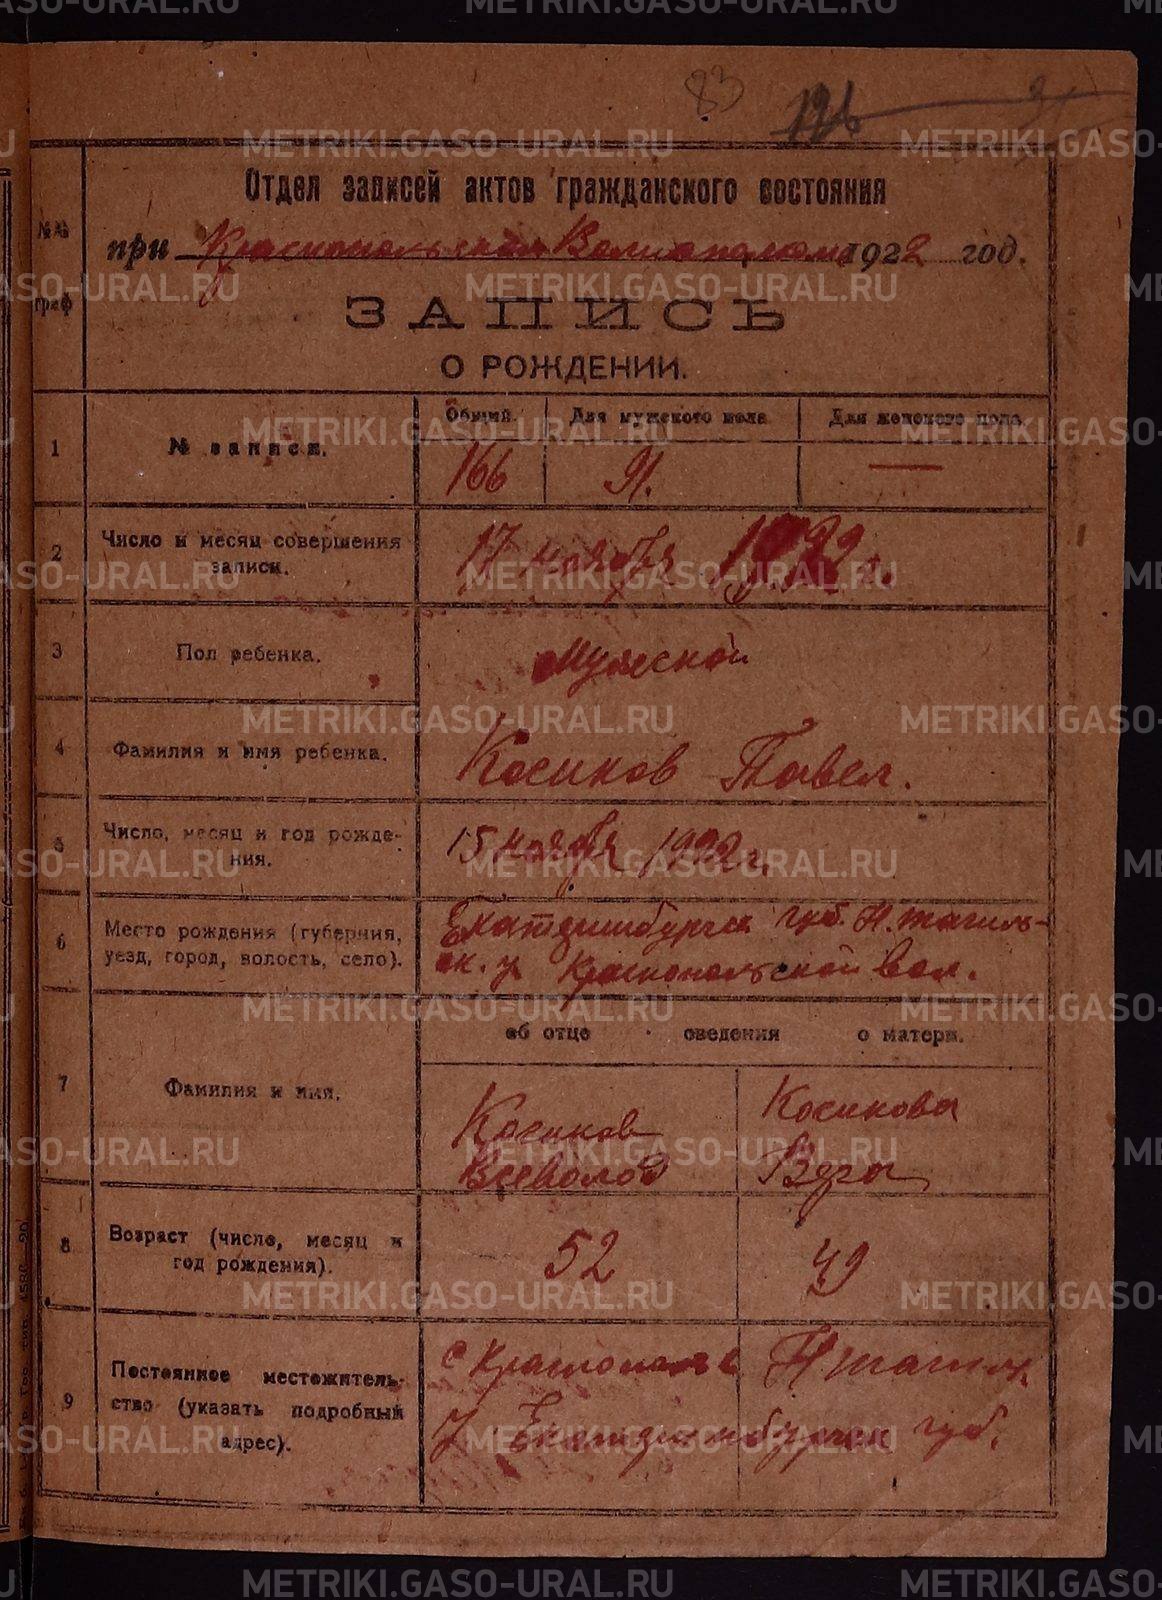 83
126
Отдел записей актов гражданского состояния
№№ граф
при Краснопольском Волисполкоме 1922 год.
ЗАПИСЬ
О РОЖДЕНИИ.
1
№ записи.
Общий.
Для мужского пола
Для женского пола
166
91.
—
2
Число и месяц совершения
записи.
17 ноября 1922 г.
3
Пол ребенка.
Мужской
4
Фамилия и имя ребенка.
Косиков Павел.
5
Число, месяц и год рожде-
ния.
15 ноября 1922 г.
6
Место рождения (губерния,
уезд, город, волость, село).
Екатеринбургск губ. Н. тагиль-
ск. у Краснопольской вол.
об отце сведения о матери.
7
Фамилия и имя.
Косиков
Всеволод
Косикова
Вера
8
Возраст (число, месяц и
год рождения).
52
49
9
Постоянное местожитель-
ство (указать подробный
адрес).
с Краснополье Н тагил.
у Екатеринбургск губ.
METRIKI.GASO-URAL.RU